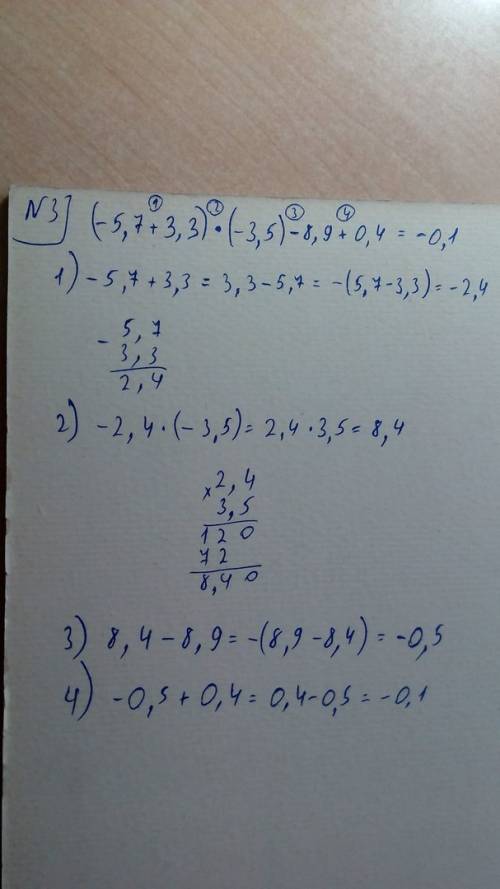 ① ② ③ ④
N3] (-5,7+3,3)•(-3,5)-8,9+0,4=-0,1
1) -5,7+3,3=3,3-5,7=-(5,7-3,3)=-2,4
- 5,7
3,3
2,4
2) -2,4·(-3,5)=2,4·3,5=8,4
x 2,4
3,5
120
72
8,40
3) 8,4-8,9=-(8,9-8,4)=-0,5
4) -0,5+0,4=0,4-0,5=-0,1